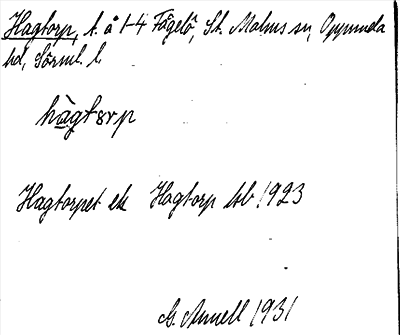 Hagtorp, t. å 1-4 Fågelö, St. Malms sn, Oppunda
hd, Sörml. l.
hàgtɔrp
Hagtorpet ek Hagtorp Jtb 1923
G. Annell 1931